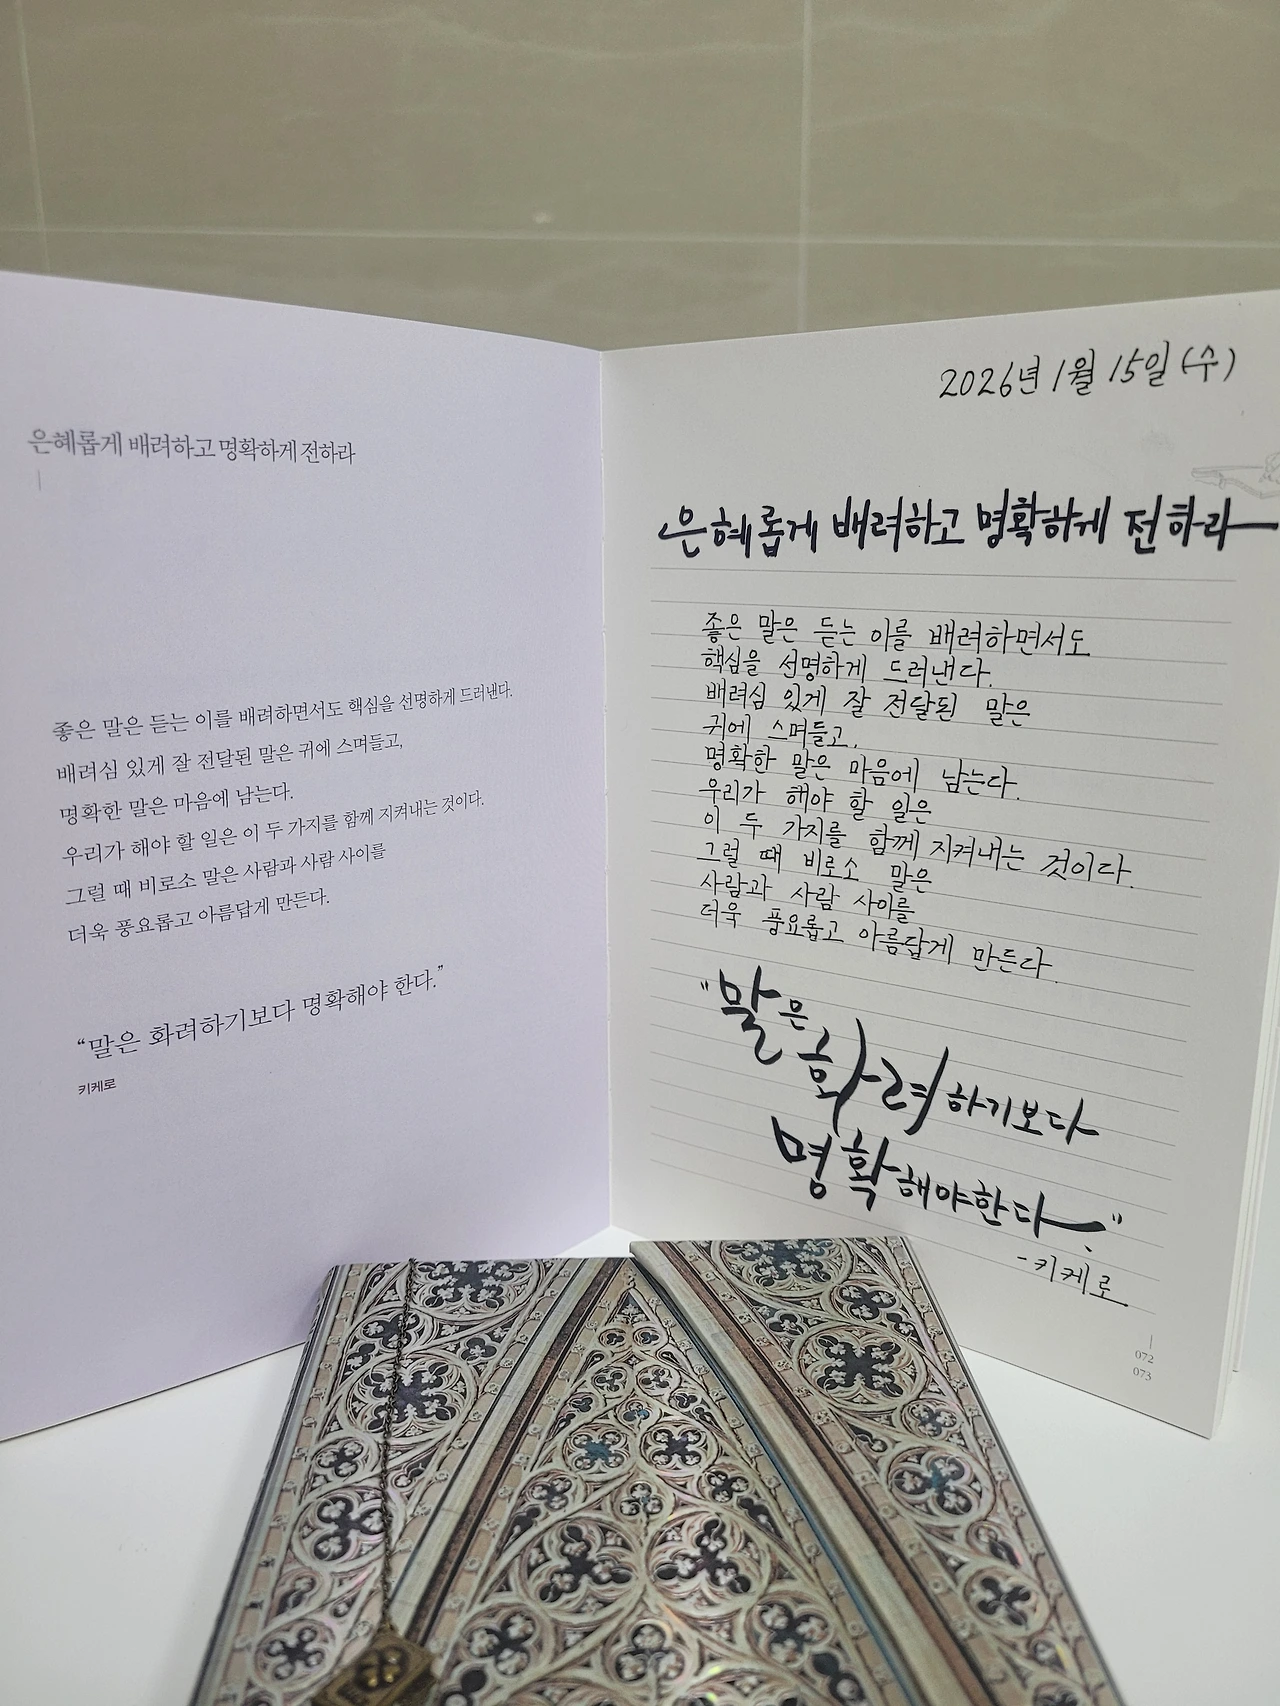 은혜롭게 배려하고 명확하게 전하라
좋은 말은 듣는 이를 배려하면서도 핵심을 선명하게 드러낸다.
배려심 있게 잘 전달된 말은 귀에 스며들고,
명확한 말은 마음에 남는다.
우리가 해야 할 일은 이 두 가지를 함께 지켜내는 것이다.
그럴 때 비로소 말은 사람과 사람 사이를
더욱 풍요롭고 아름답게 만든다.
“말은 화려하기보다 명확해야 한다.”
키케로
2026년 1월 15일 (수)
은혜롭게 배려하고 명확하게 전하라
좋은 말은 듣는 이를 배려하면서도
핵심을 선명하게 드러낸다.
배려심 있게 잘 전달된 말은
귀에 스며들고,
명확한 말은 마음에 남는다.
우리가 해야 할 일은
이 두 가지를 함께 지켜내는 것이다.
그럴 때 비로소 말은
사람과 사람 사이를
더욱 풍요롭고 아름답게 만든다.
"말은 화려하기보다
명확해야한다."
-키케로.
072
073